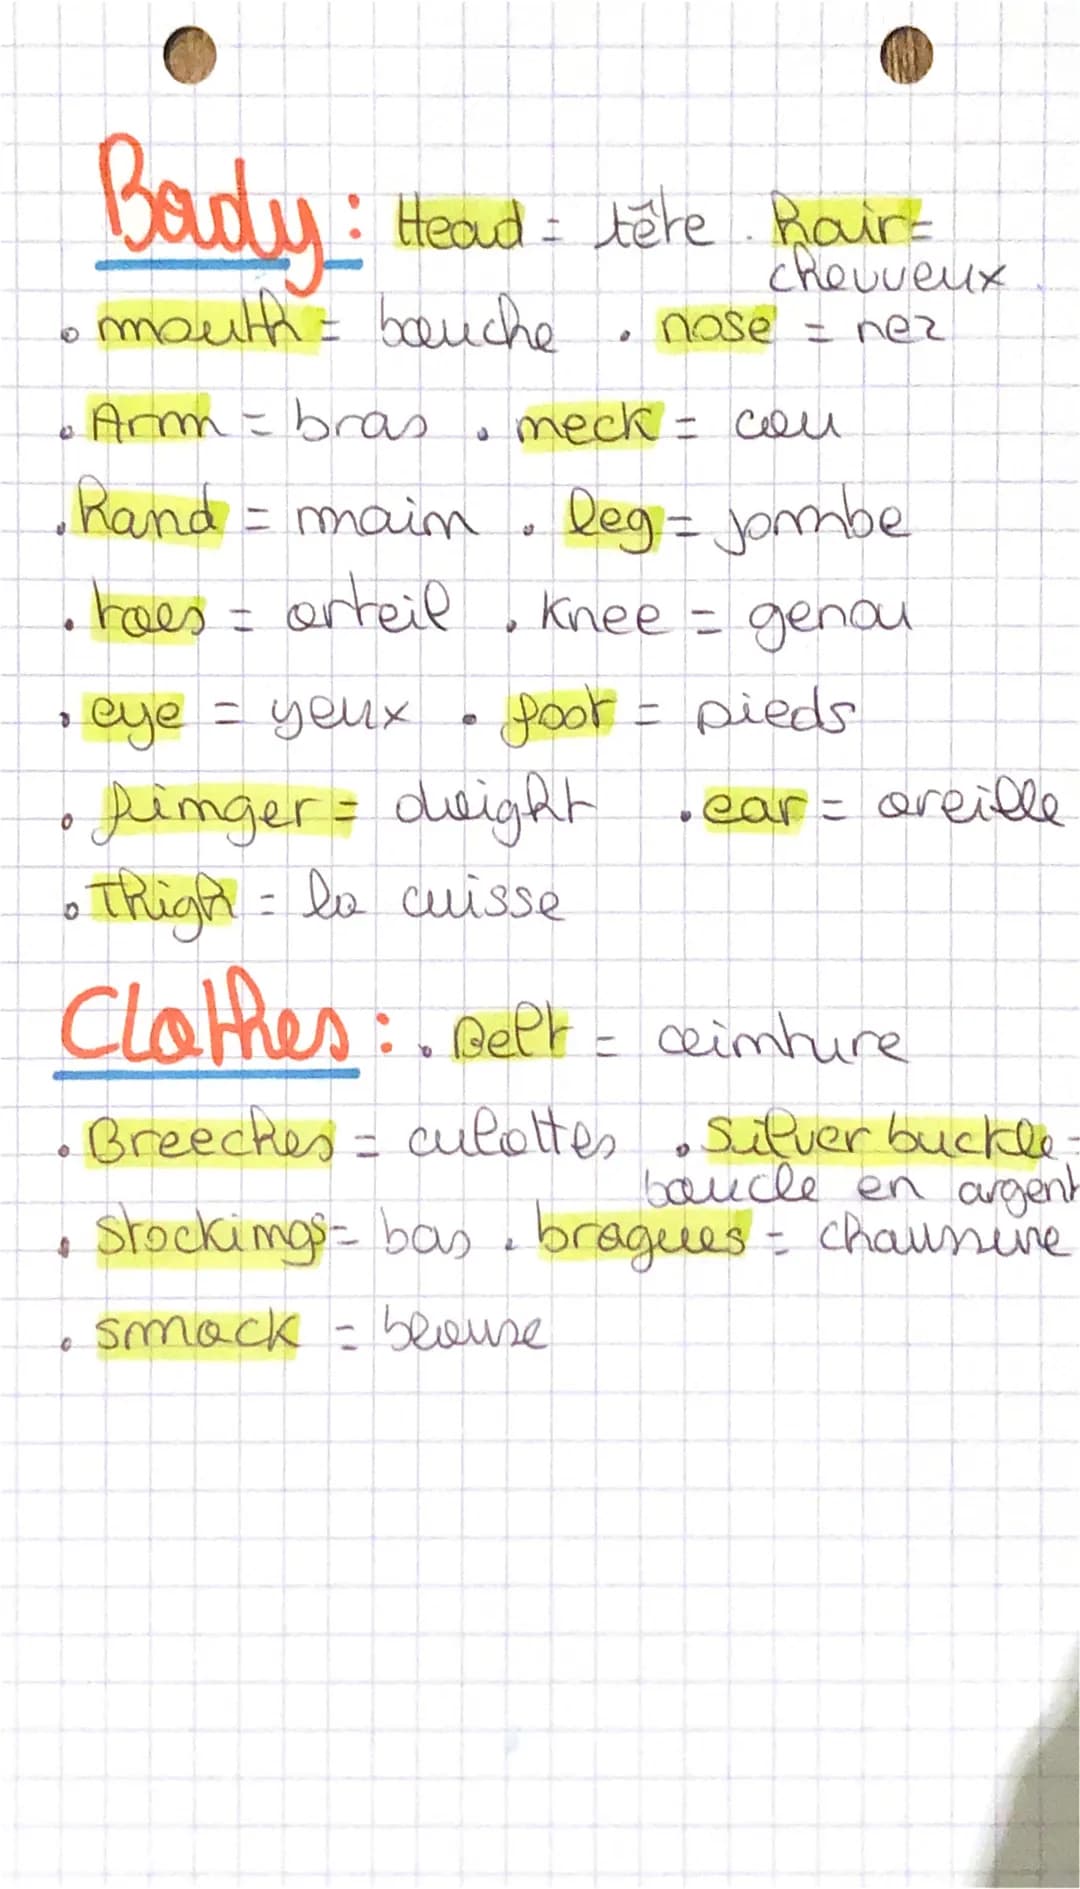 Body : Head = tête . hair =
chevveux
• mouth = bouche • nose = nez
• Arm = bras • neck = cou
• hand = main • leg = jambe
• toes = orteil • Knee = genou
• eye = yeux • foot = pieds
• finger = doight • ear = oreille
• Thigh = la cuisse
Clothes : • Belt = ceinture
• Breeches = culottes • Silver buckle =
boucle en argent
• Stockings = bas • bragues = chaussure
• smock = blouse